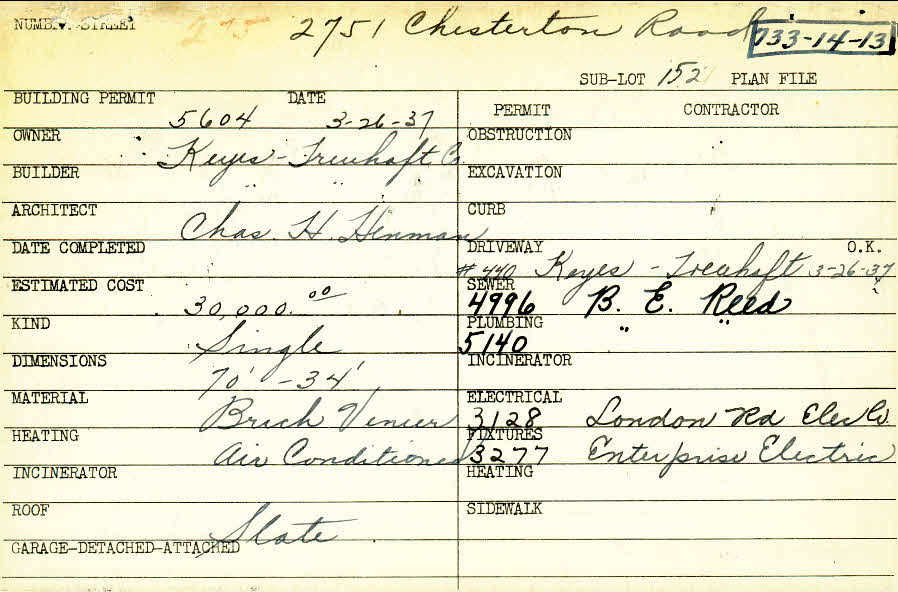 NUMBER STREET 275 2751 Chesterton Road 733-14-13
SUB-LOT 152 PLAN FILE
BUILDING PERMIT DATE
5604 3-26-37
PERMIT CONTRACTOR
OWNER Keyes-Treuhaft Co.
OBSTRUCTION
BUILDER " "
EXCAVATION
ARCHITECT Chas. H. Hinman
CURB
DATE COMPLETED
DRIVEWAY O.K.
#440 Keyes-Treuhaft 3-26-37
ESTIMATED COST 30,000.00
SEWER
4996 B. E. Reed
KIND Single
PLUMBING
5140 " "
DIMENSIONS 70'-34'
INCINERATOR
MATERIAL Brick Veneer
ELECTRICAL
3128 London Rd Elec Co.
HEATING Air Conditioned
FIXTURES
3277 Enterprise Electric
INCINERATOR
HEATING
ROOF Slate
SIDEWALK
GARAGE-DETACHED-ATTACHED